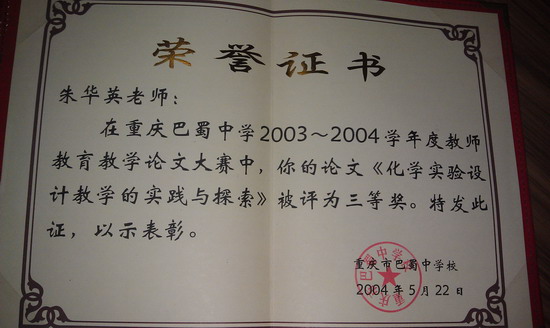 荣誉证书
朱华英老师：
在重庆巴蜀中学2003～2004学年度教师
教育教学论文大赛中，你的论文《化学实验设
计教学的实践与探索》被评为三等奖。特发此
证，以示表彰。
重庆市巴蜀中学校
2004年5月22日